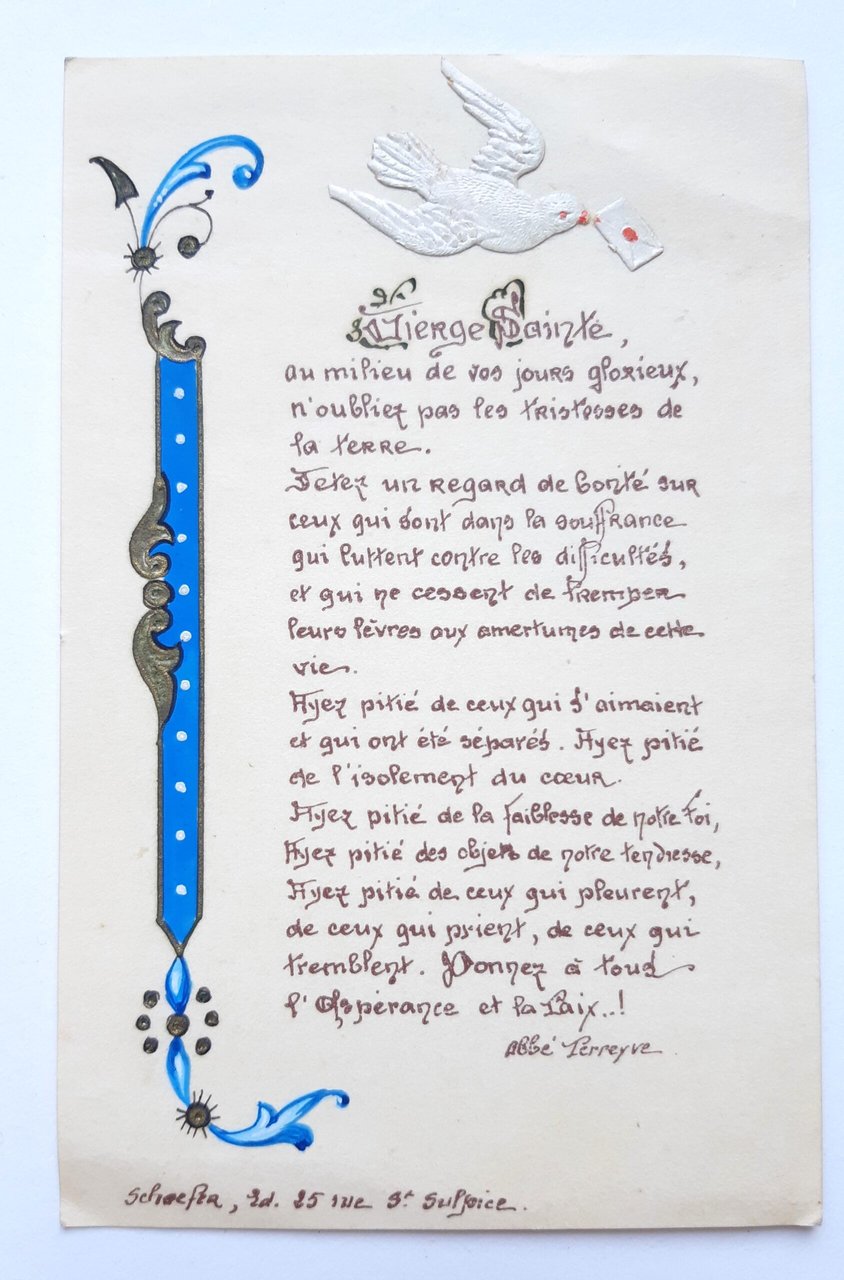 Vierge Sainte,
au milieu de vos jours glorieux,
n'oubliez pas les tristesses de
la terre.
Jetez un regard de bonté sur
ceux qui sont dans la souffrance
qui luttent contre les difficultés,
et qui ne cessent de tremper
leurs lèvres aux amertumes de cette
vie.
Ayez pitié de ceux qui s'aimaient
et qui ont été séparés. Ayez pitié
de l'isolement du cœur.
Ayez pitié de la faiblesse de notre foi,
Ayez pitié des objets de notre tendresse,
Ayez pitié de ceux qui pleurent,
de ceux qui prient, de ceux qui
tremblent. Donnez à tous
l'Espérance et la Paix..!
Abbé Perreyve
Ed. 25 rue St Sulpice.